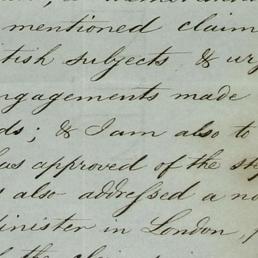 mentioned claim
tish subjects & ur
ngagements made
ds; & I am also to
has approved of the ste
s also addressed a no
inister in London,